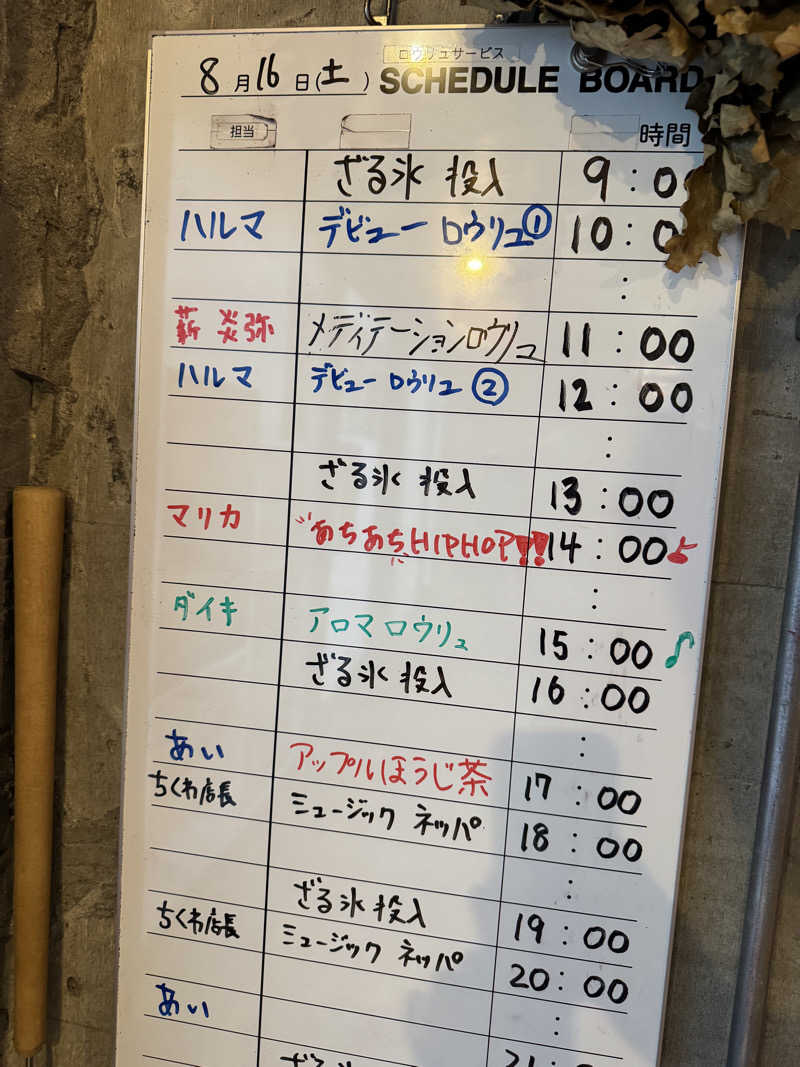 ロウリュサービス
8月16日(土) SCHEDULE BOARD
担当 時間
ざる氷 投入 9:0
ハルマ デビュー ロウリュ① 10:0
:
薪 炎弥 メディテーションロウリュ 11:00
ハルマ デビュー ロウリュ② 12:00
:
ざる氷 投入 13:00
マリカ あちあちHIPHOP!!! 14:00
:
ダイキ アロマロウリュ 15:00
ざる氷 投入 16:00
:
あい アップルほうじ茶 17:00
ちくわ店長 ミュージック ネッパ 18:00
:
ざる氷 投入 19:00
ちくわ店長 ミュージック ネッパ 20:00
:
あい
ざる氷